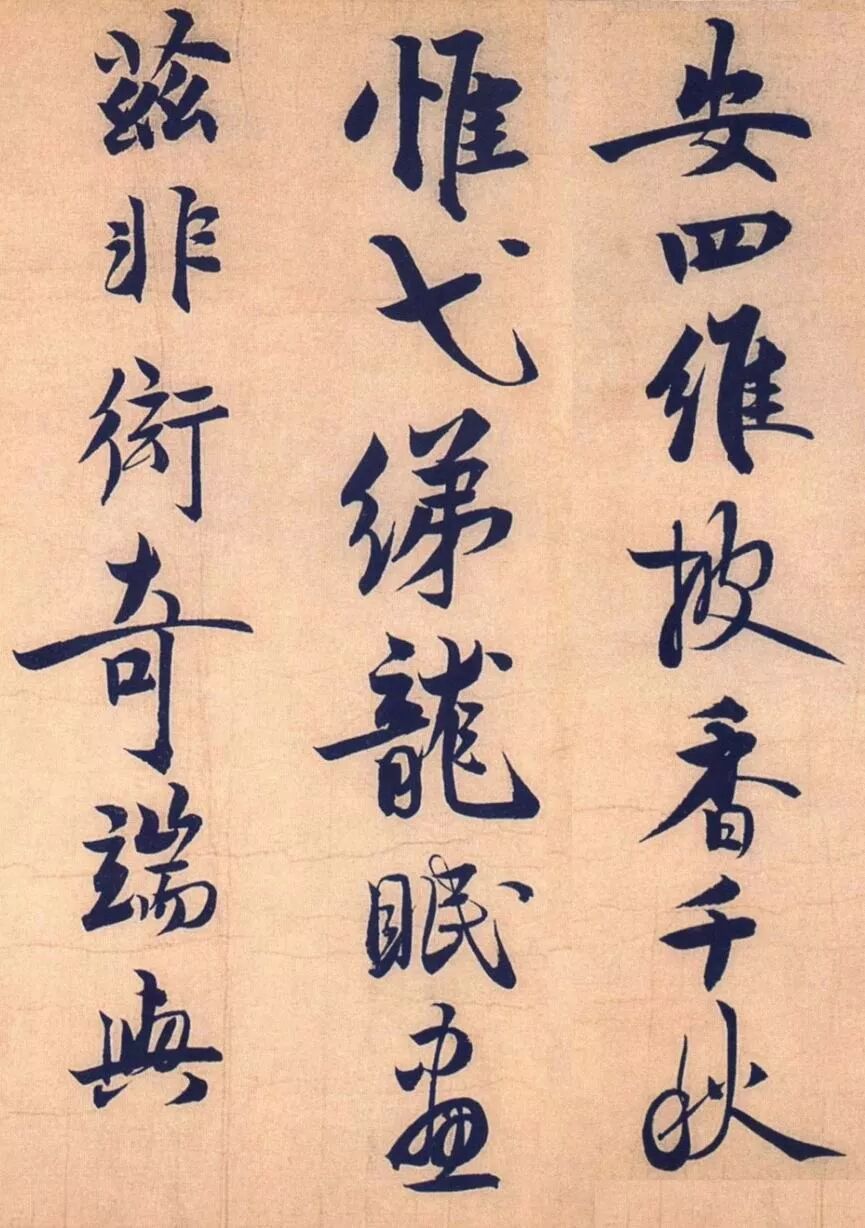 安四維披香千秋
惟弋綈龍眠畫
茲非衒奇端與